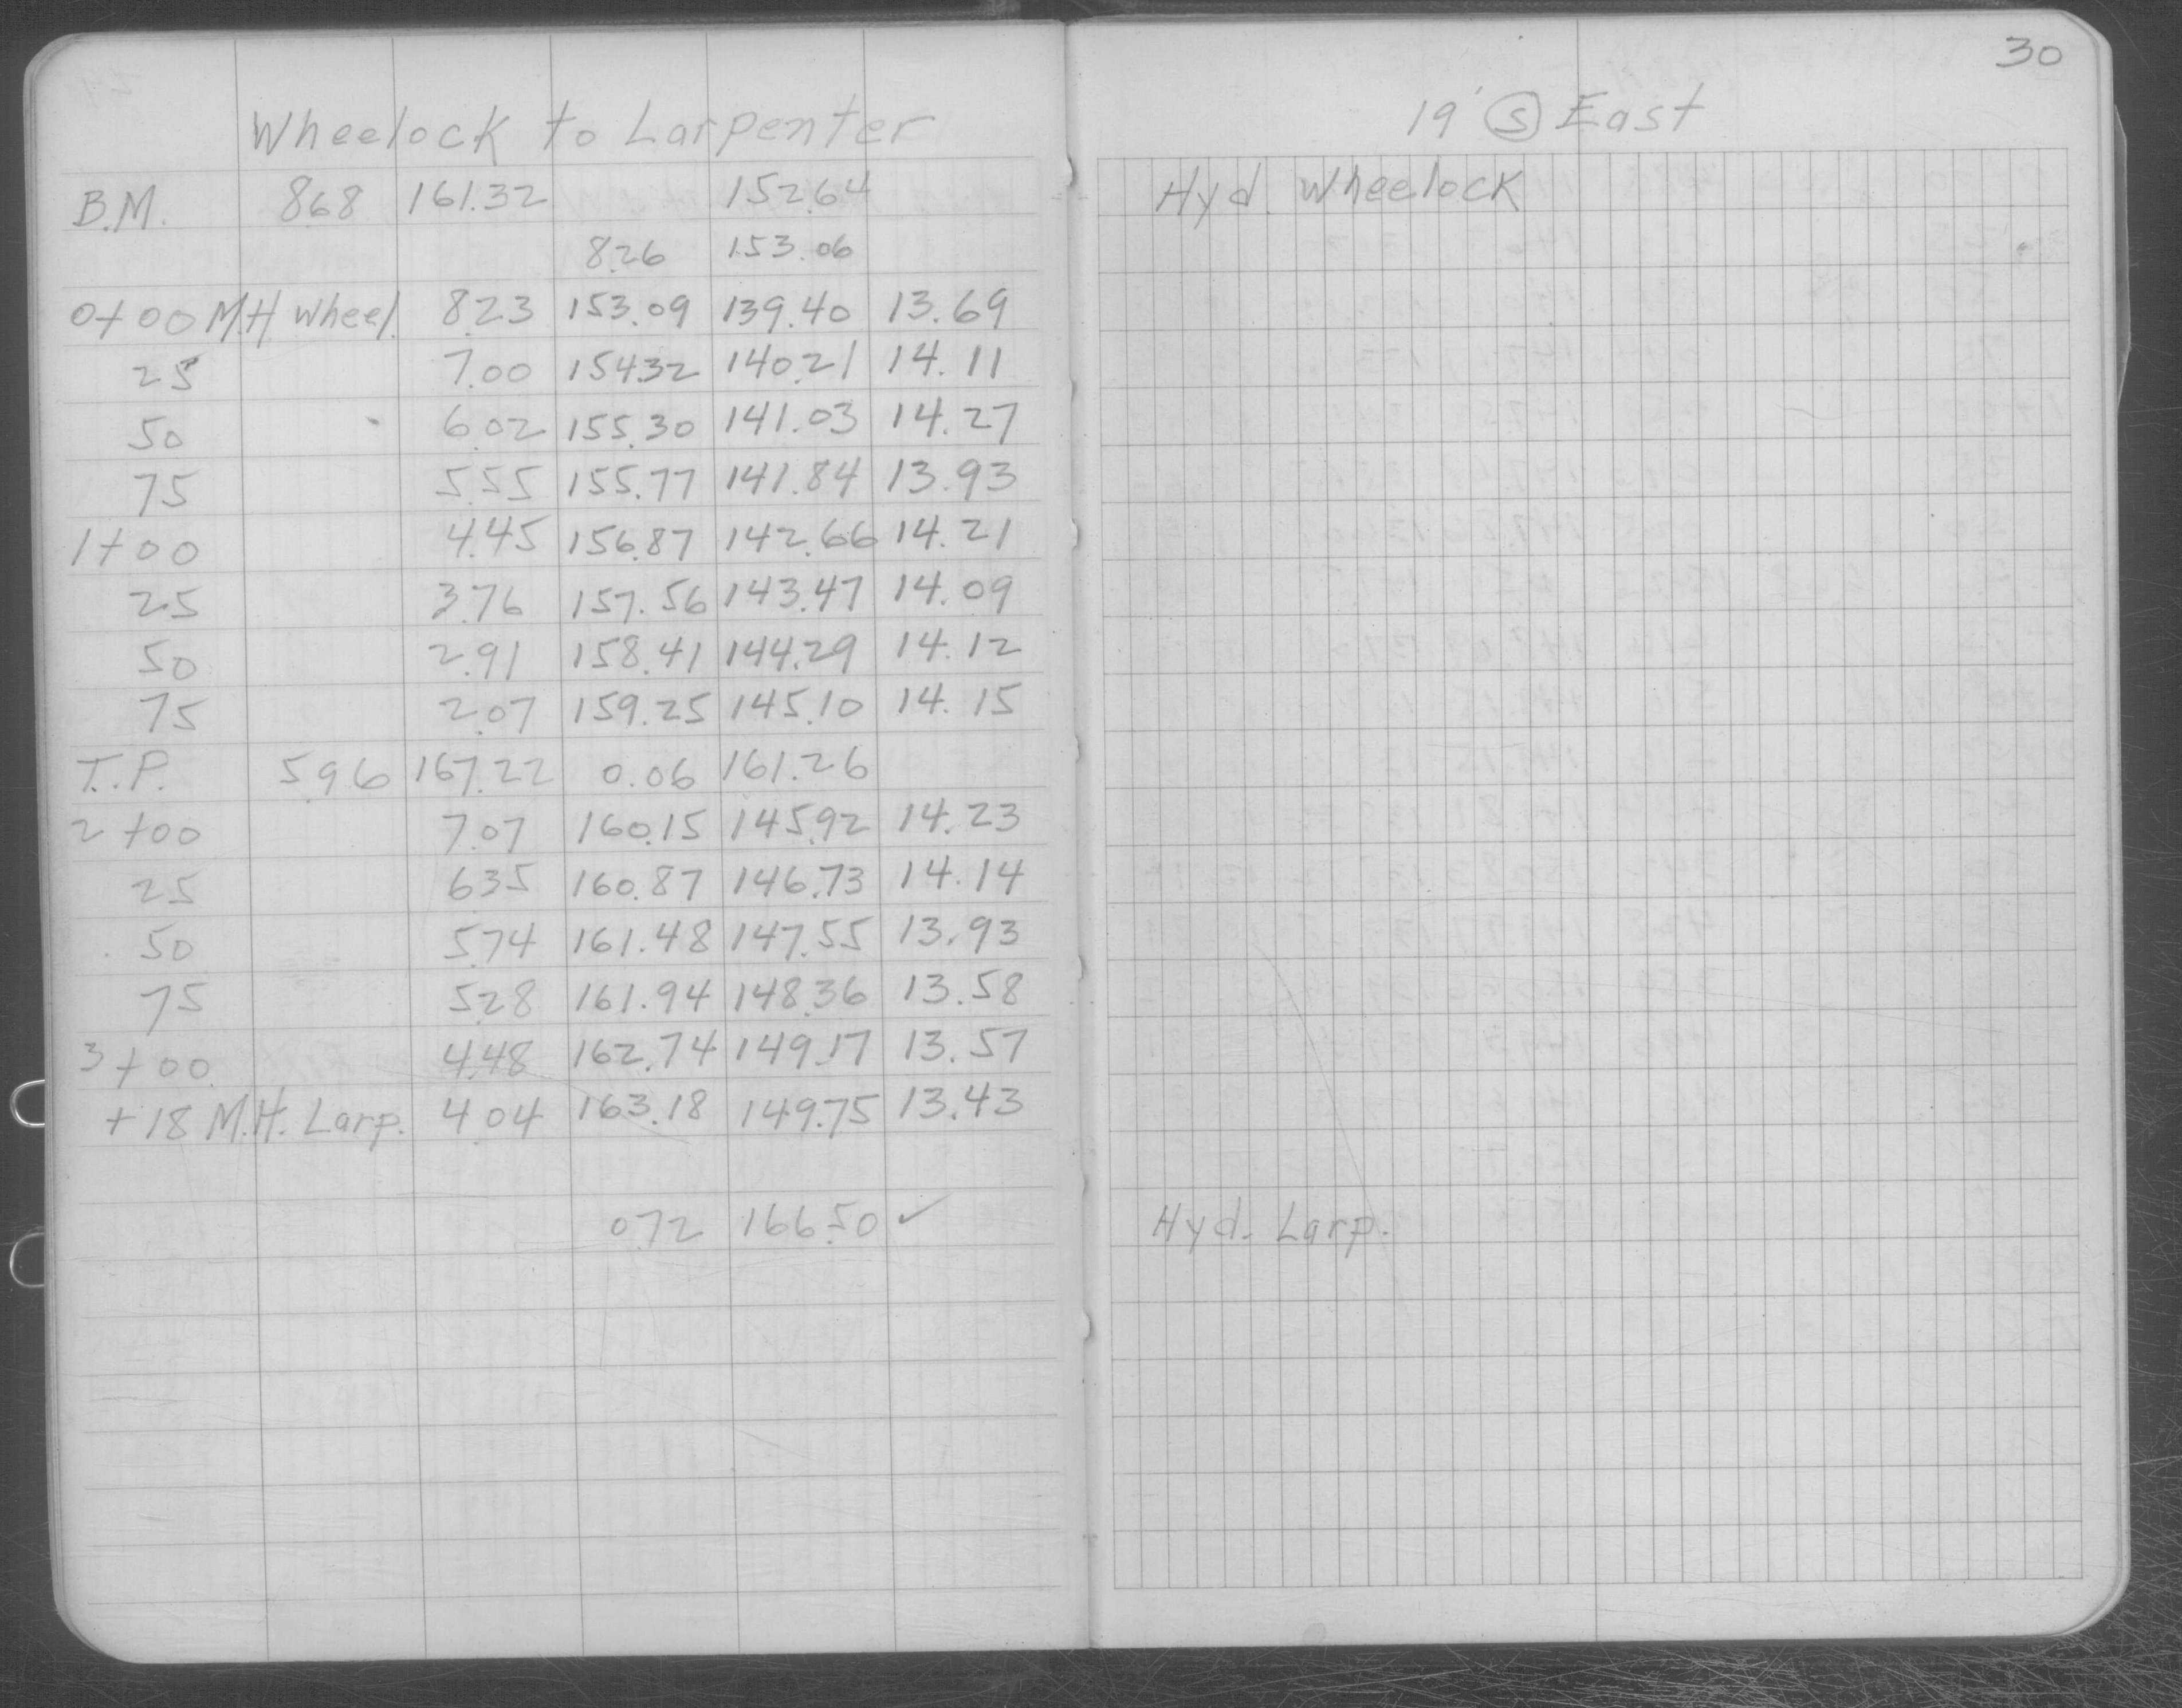 30
Wheelock to Larpenter
19' S East
B.M. 8.68 161.32 152.64
Hyd. Wheelock
8.26 153.06
0+00 M.H. Wheel. 8.23 153.09 139.40 13.69
25 7.00 154.32 140.21 14.11
50 6.02 155.30 141.03 14.27
75 5.55 155.77 141.84 13.93
1+00 4.45 156.87 142.66 14.21
25 3.76 157.56 143.47 14.09
50 2.91 158.41 144.29 14.12
75 2.07 159.25 145.10 14.15
T.P. 5.96 167.22 0.06 161.26
2+00 7.07 160.15 145.92 14.23
25 6.35 160.87 146.73 14.14
50 5.74 161.48 147.55 13.93
75 5.28 161.94 148.36 13.58
3+00 4.48 162.74 149.17 13.57
+18 M.H. Larp. 4.04 163.18 149.75 13.43
0.72 166.50 ✓
Hyd. Larp.